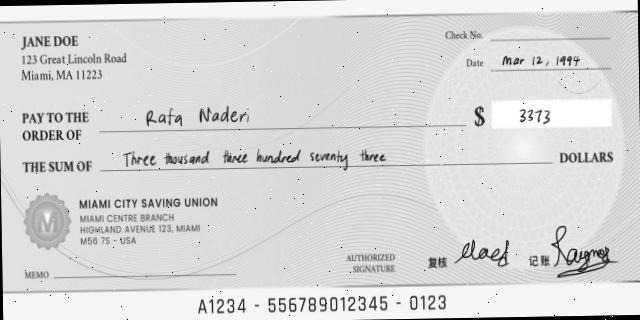 JANE DOE
123 Great Lincoln Road
Miami, MA 11223
Check No.
Date Mar 12, 1994
PAY TO THE ORDER OF Rafa Naderi $ 3373
THE SUM OF Three thousand three hundred seventy three DOLLARS
M
MIAMI CITY SAVING UNION
MIAMI CENTRE BRANCH
HIGHLAND AVENUE 123, MIAMI
M56 7S - USA
MEMO
AUTHORIZED SIGNATURE
复核
记账
A1234 - 556789012345 - 0123